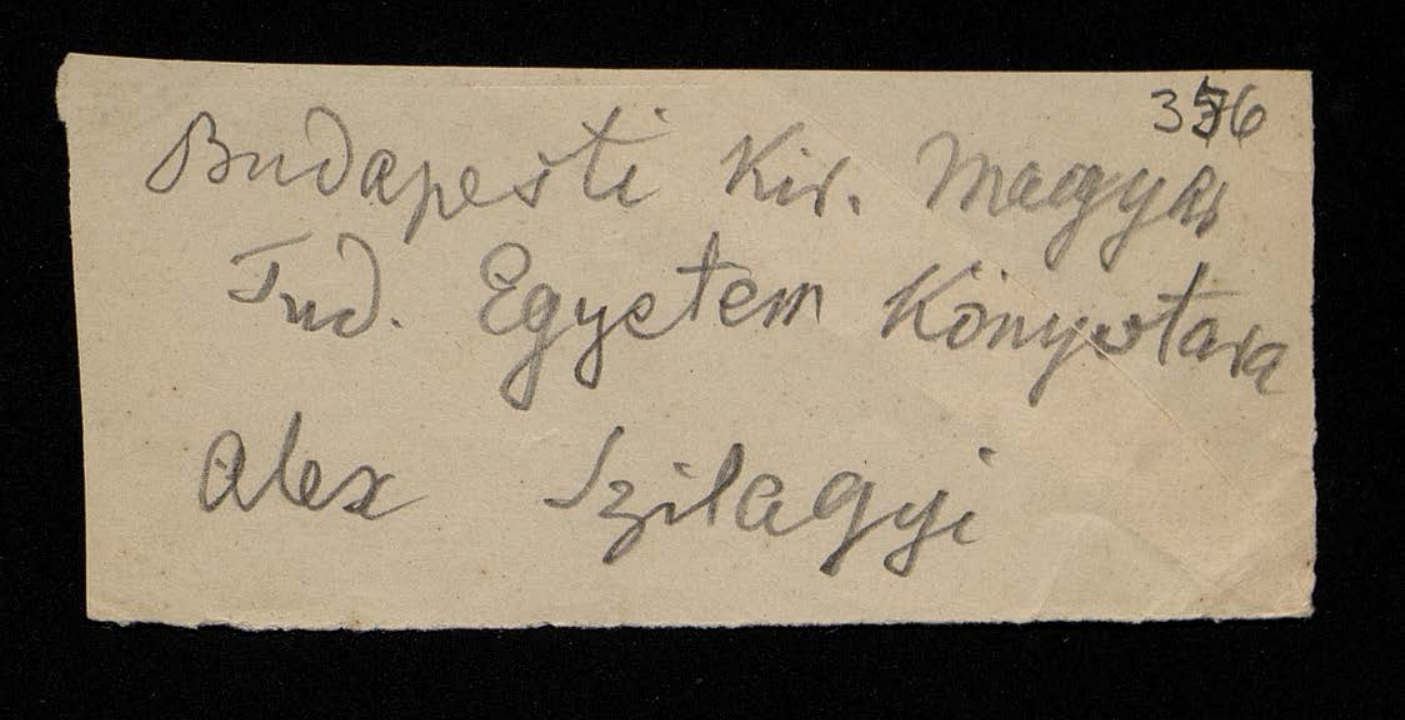 Budapesti Kir. Magyar
Tud. Egyetem Könyvtara
Alex Szilagyi